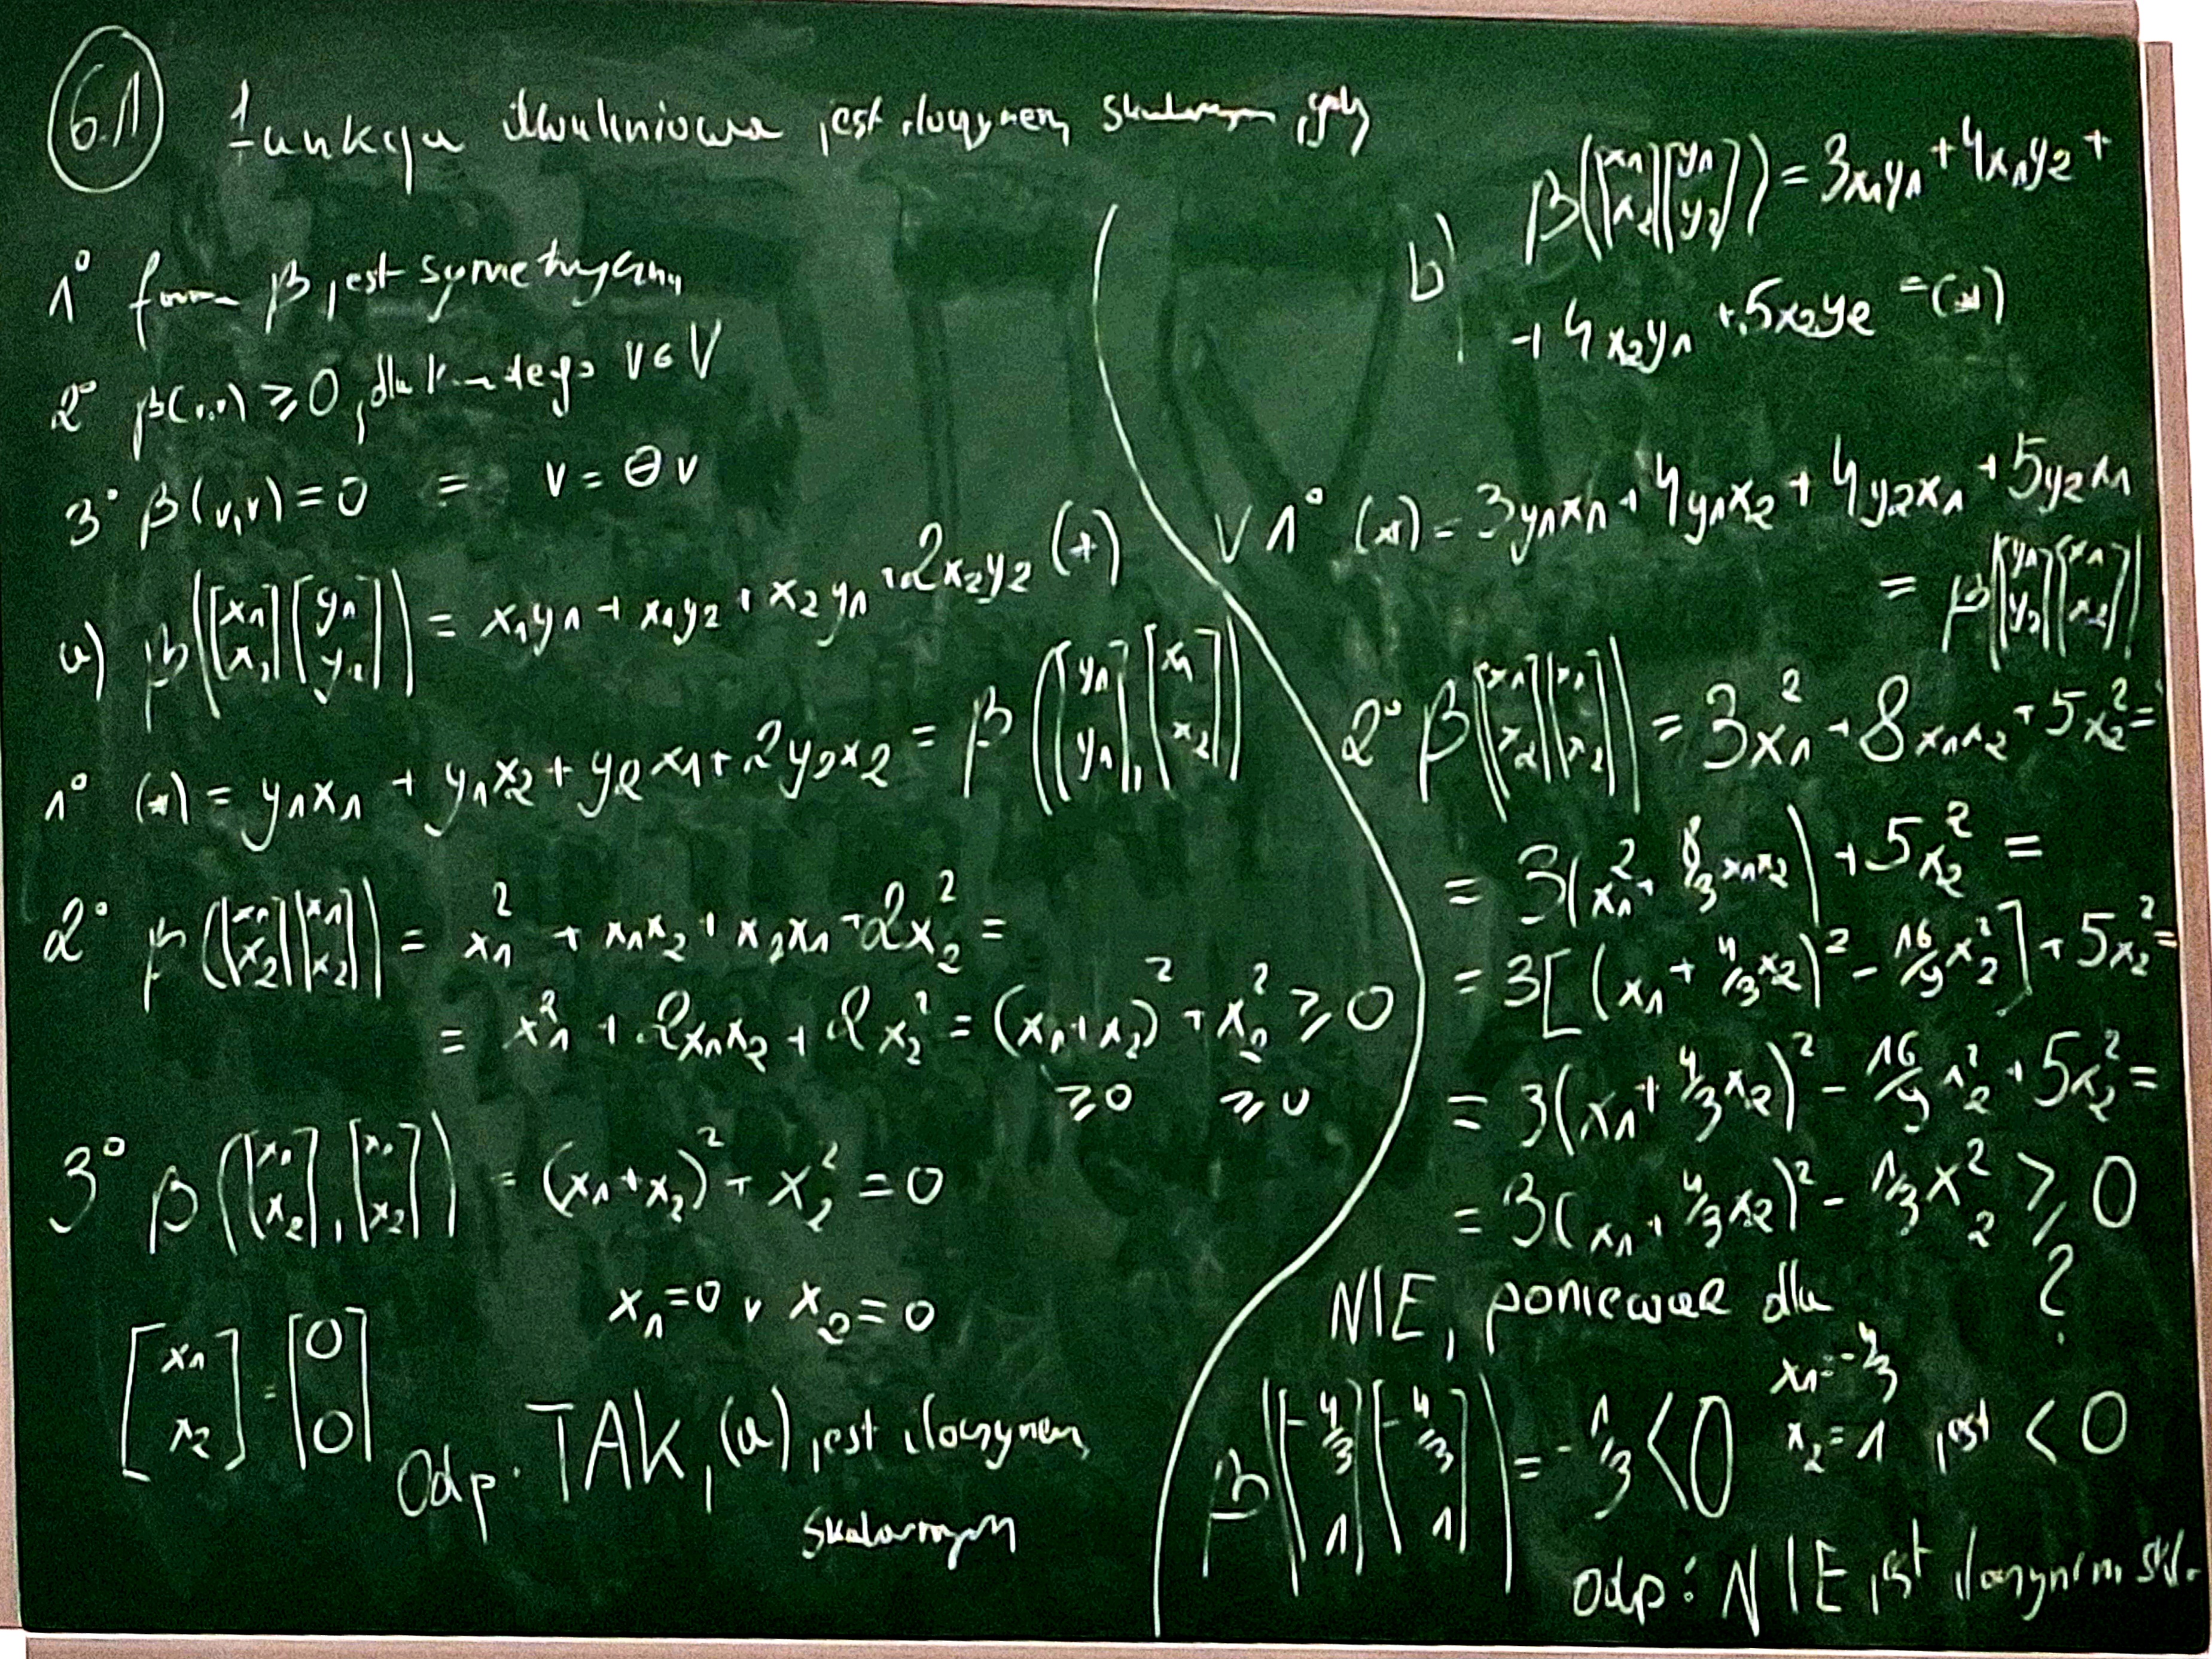 6.1 Funkcja dwuliniowa jest iloczynem skalarnym, gdy
1° forma β jest symetryczna
2° β(v,v) ≥ 0, dla każdego v ∈ V
3° β(v,v) = 0 = v = Θv
a) β([x1 x2][y1 y2]) = x1y1 + x1y2 + x2y1 + 2x2y2 (*)
1° (*) = y1x1 + y1x2 + y2x1 + 2y2x2 = β([y1 y1], [x1 x2])
2° β([x1 x2][x1 x2]) = x1² + x1x2 + x2x1 + 2x2² =
= x1² + 2x1x2 + 2x2² = (x1+x2)² + x2² ≥ 0
≥0 ≥0
3° β([x1 x2], [x1 x2]) = (x1+x2)² + x2² = 0
x1=0 v x2=0
[x1 x2] = [0 0]
Odp. TAK, (a) jest iloczynem
skalarnym
b) β([x1 x2][y1 y2]) = 3x1y1 + 4x1y2 +
+ 4x2y1 + 5x2y2 = (*)
V 1° (*) = 3y1x1 + 4y1x2 + 4y2x1 + 5y2x1
= β([y1 y2][x1 x2])
2° β([x1 x2][x1 x2]) = 3x1² + 8x1x2 + 5x2² =
= 3(x1² + 8/3 x1x2) + 5x2² =
= 3[(x1 + 4/3 x2)² - 16/9 x2²] + 5x2² =
= 3(x1 + 4/3 x2)² - 16/9 x2² + 5x2² =
= 3(x1 + 4/3 x2)² - 1/3 x2² ≥ 0
?
NIE, ponieważ dla
x1 = -4/3
x2 = 1 jest < 0
β([-4/3 1][-4/3 1]) = -1/3 < 0
Odp: NIE jest iloczynem sk.